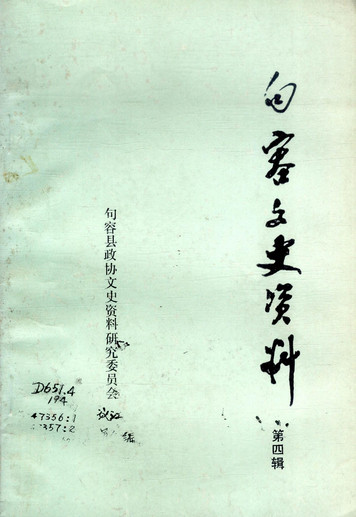 句容文史资料
第四辑
句容县政协文史资料研究委员会
编
D651.4
194
47356:1
357:2